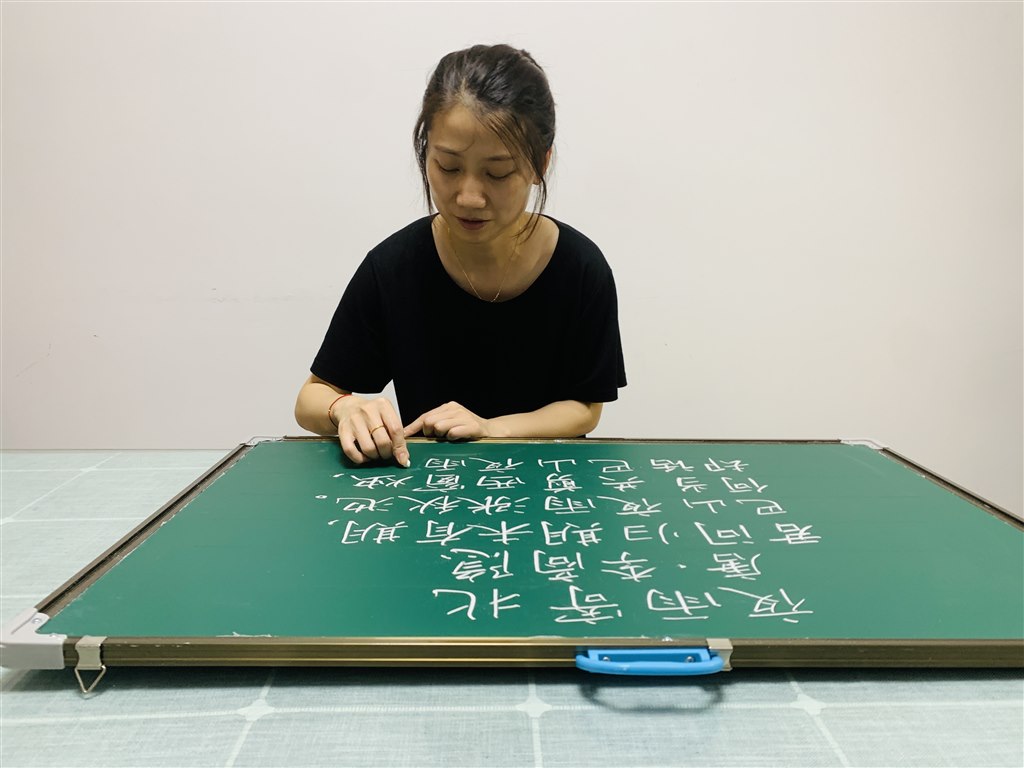 夜雨寄北
唐·李商隐
君问归期未有期,
巴山夜雨涨秋池。
何当共剪西窗烛,
却话巴山夜雨